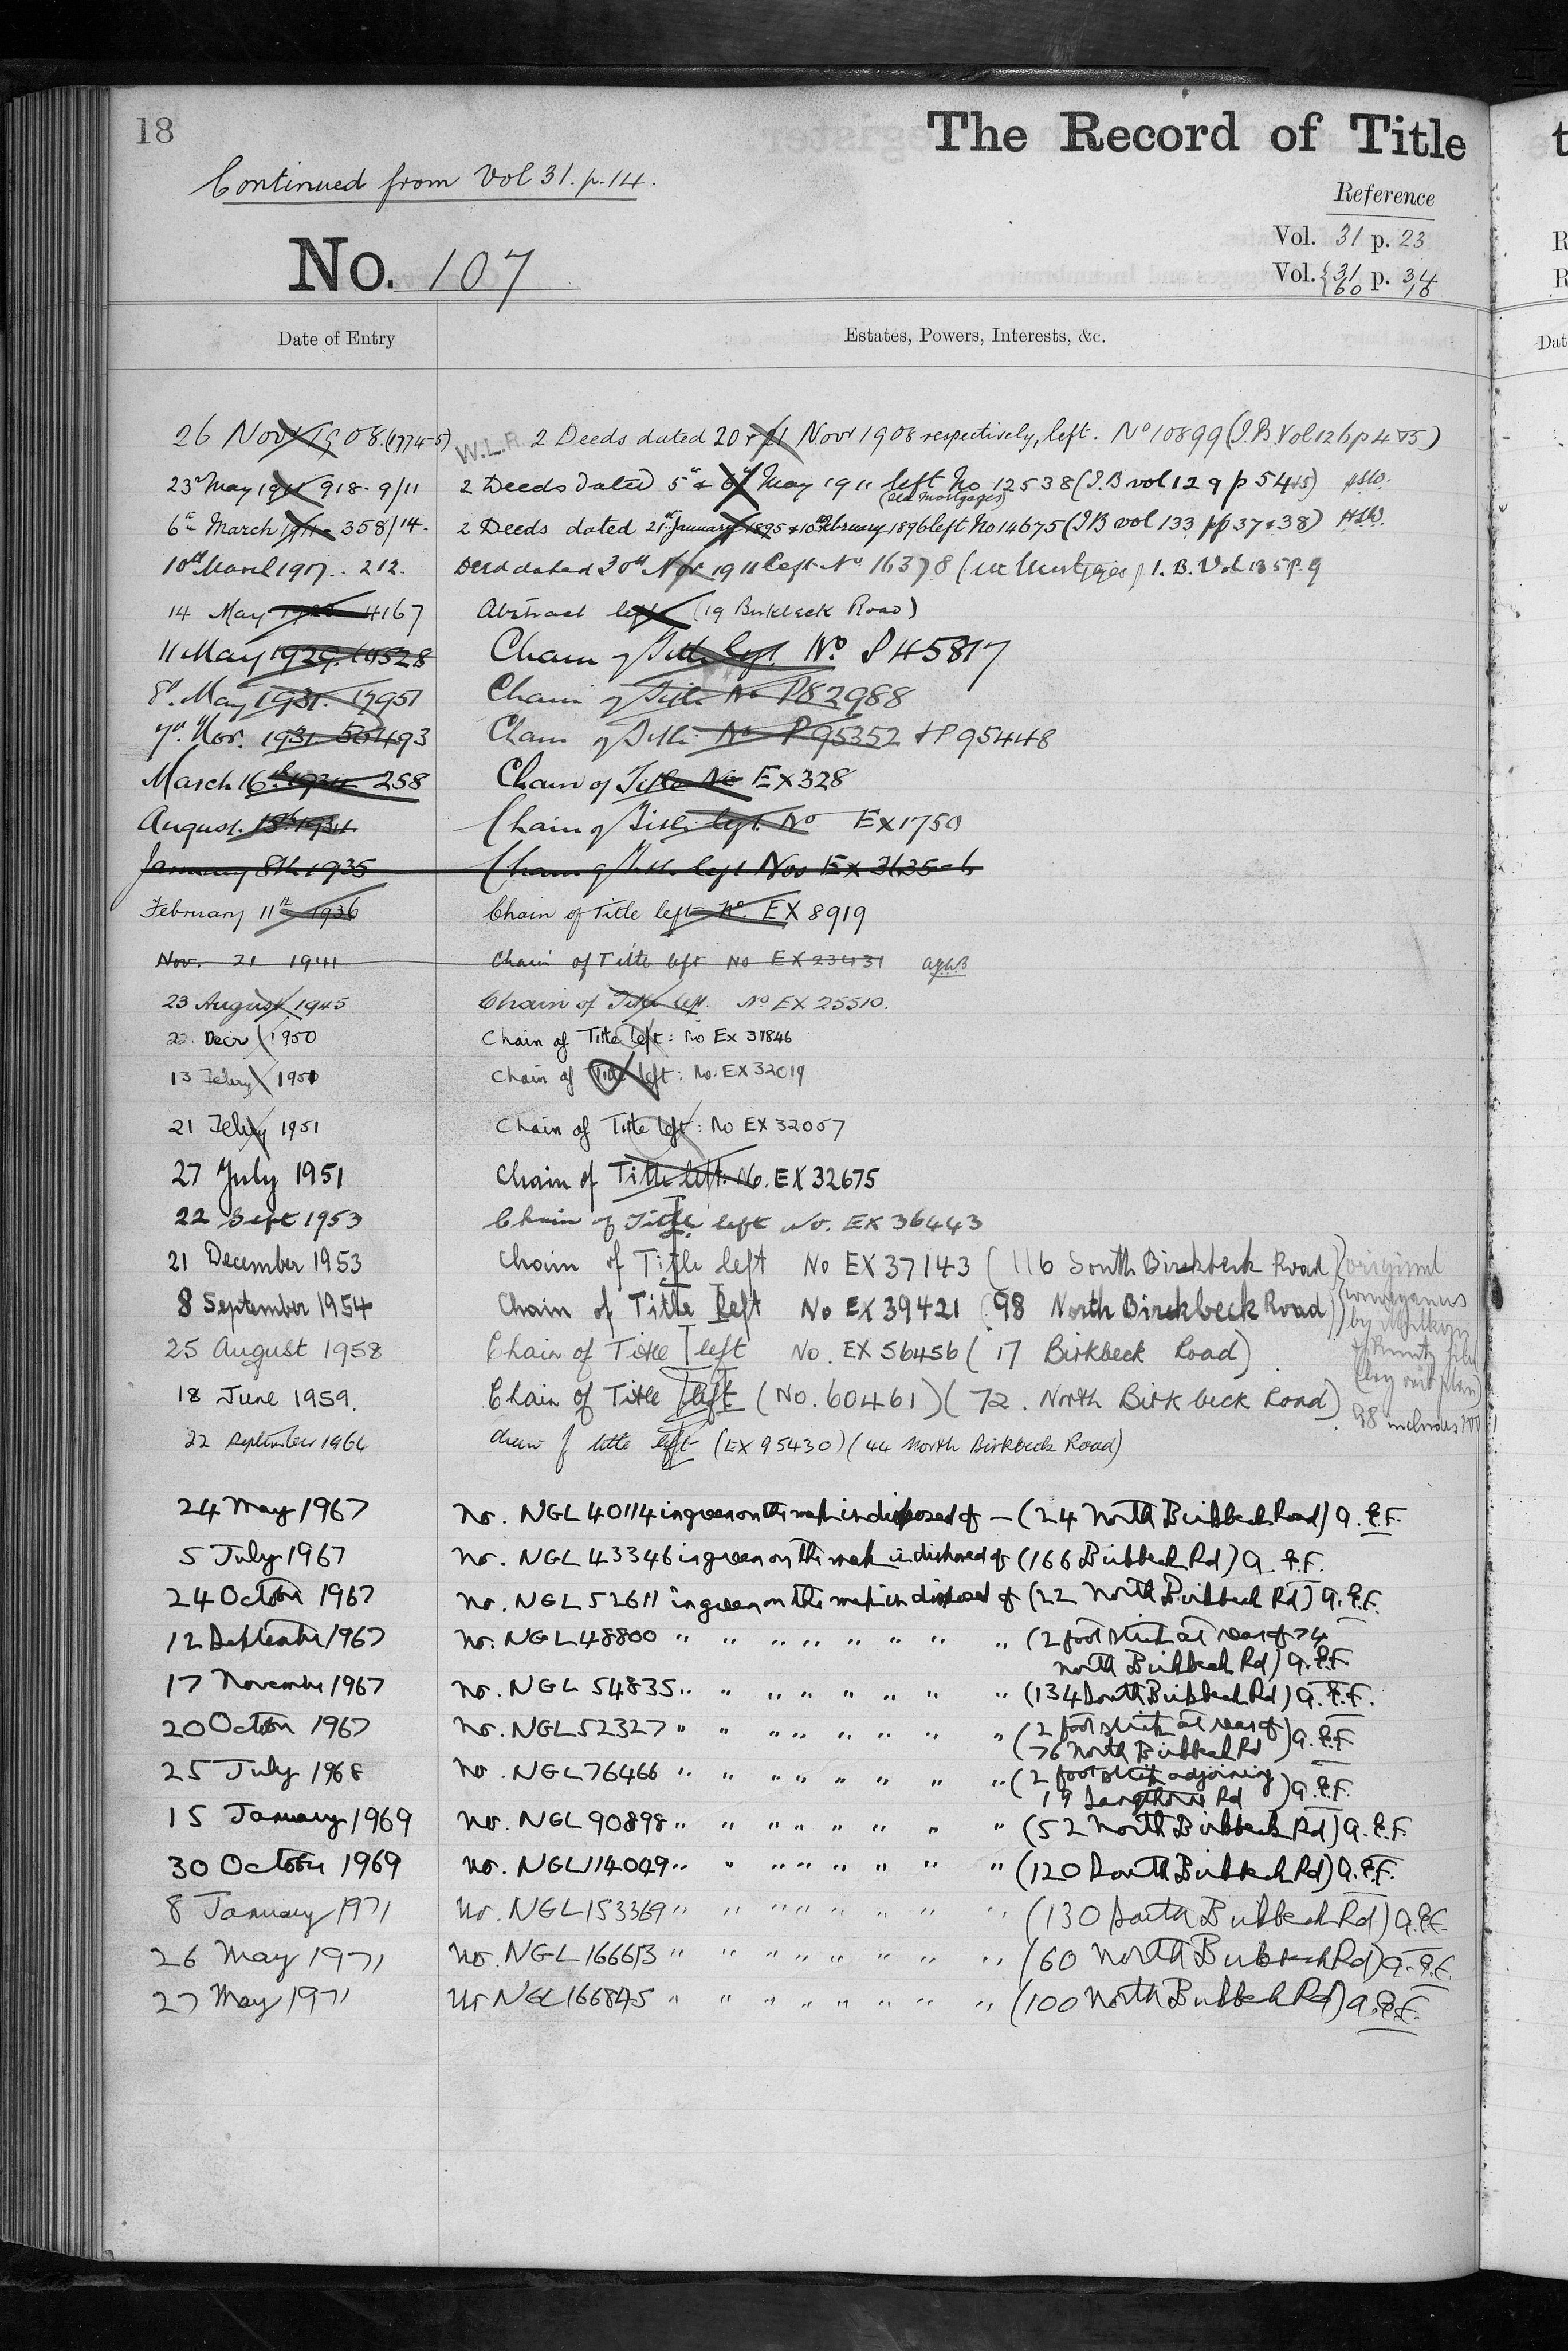 18
The Record of Title
Continued from Vol 31. p. 14.
Reference
Vol. 31 p. 23
No. 107
Vol. {31 p. 34
{60 18
Date of Entry
Estates, Powers, Interests, &c.
26 Novr 1908. (1774-5) W.L.R. 2 Deeds dated 20 & 21 Novr 1908 respectively, left. No 10899 (I.B. Vol 126 p 4 & 5)
23rd May 1911 918-9/11 2 Deeds dated 5th & 6th May 1911 left No 12538 (I.B vol 129 p 54 & 5) HSW.
(old mortgages)
6th March 1914 358/14. 2 Deeds dated 21st January 1895 & 10th February 1896 left No 14675 (IB vol 133 pp 37 & 38) HSW.
10th March 1917.. 212. Deed dated 30th Nov 1911 left No 16378 ( Mortgages) I.B. Vol 135 p. 9
14 May 4167 Abstract left (19 Birkbeck Road)
11 May 1929. 10528 Chain of Title left No P45817
8th May 1931. 17951 Chain of Title No P82988
7th Nov. 1931 50493 Chain of Title No P95352 & P95448
March 16th 1934 258 Chain of Title No EX328
August 15th 1934 Chain of Title left No EX1750
January 8th 1935 Chain of Title left Nos EX 3635-6
February 11th 1936 Chain of Title left No. EX 8919
Nov. 21 1941 Chain of Title left No EX 23431
23 August 1945 Chain of Title left. No EX 25510.
22 Decr 1950 Chain of Title left: No EX 31846
13 Febry 1951 Chain of Title left: No. EX 32019
21 Febry 1951 Chain of Title left: No EX 32057
27 July 1951 Chain of Title left: No. EX 32675
22 Sept 1953 Chain of Title left No. EX 36443
21 December 1953 Chain of Title left No EX 37143 (116 South Birckbeck Road) original
8 September 1954 Chain of Title left No EX 39421 (98 North Birckbeck Road) conveyances
by
25 August 1958 Chain of Title left No. EX 56456 (17 Birkbeck Road)
(lay out plan)
18 June 1959. Chain of Title left (No. 60461) (72. North Birkbeck Road)
98 includes 100
22 September 1964 Chain of title left (EX 95430) (44 North Birkbeck Road)
24 May 1967 No. NGL 40114 in green on the map is disposed of — (24 North Birkbeck Road) a.E.F.
5 July 1967 No. NGL 43346 in green on the map is disposed of (166 Birkbeck Rd) a.E.F.
24 October 1967 No. NGL 52611 in green on the map is disposed of (22 North Birkbeck Rd) a.E.F.
12 September 1967 No. NGL 48800 " " " " " " " " (2 foot strip at rear of 74
North Birkbeck Rd) a.E.F
17 November 1967 No. NGL 54835 " " " " " " " " (134 South Birkbeck Rd) a.E.F.
20 October 1967 No. NGL 52327 " " " " " " " " (2 foot strip at rear of
76 North Birkbeck Rd) a.E.F
25 July 1968 No. NGL 76466 " " " " " " " " (2 foot strip adjoining
19 Langthorne Rd) a.E.F.
15 January 1969 No. NGL 90898 " " " " " " " " (52 North Birkbeck Rd) a.E.F.
30 October 1969 No. NGL 114049 " " " " " " " " (120 South Birkbeck Rd) a.E.F.
8 January 1971 No. NGL 153369 " " " " " " " " (130 South Birkbeck Rd) a.E.F.
26 May 1971 No. NGL 166613 " " " " " " " " (60 North Birkbeck Rd) a.E.F.
27 May 1971 No NGL 166845 " " " " " " " " (100 North Birkbeck Rd) a.E.F.